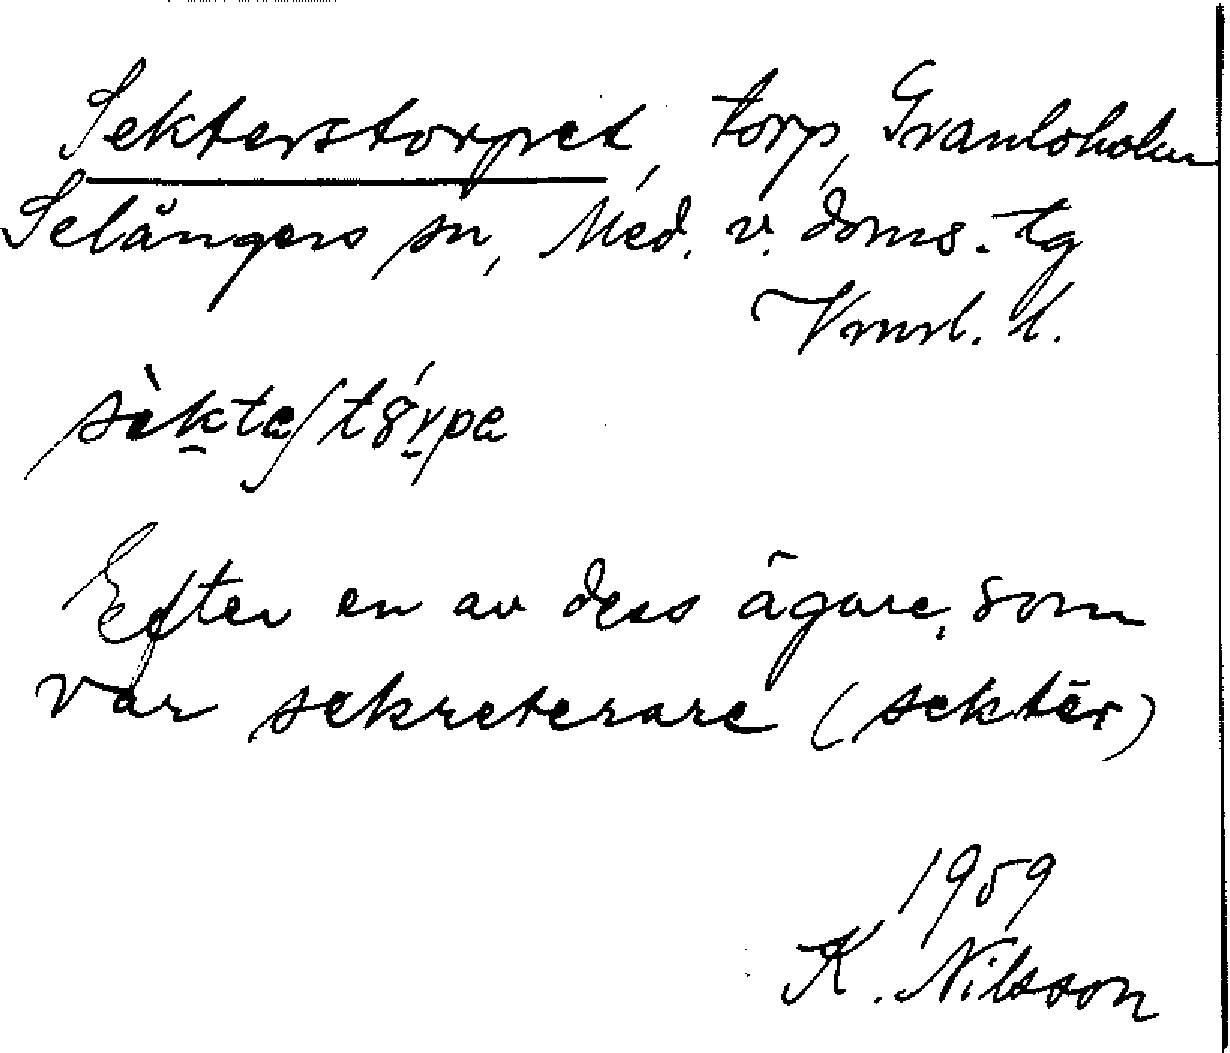 Sekterstorpet, torp, Granloholm
Selångers sn, Med. v. doms. tg
Vnrl. l.
Efter en av dess ägare, som
var sekreterare (sektēr)
1959
K. Nilsson